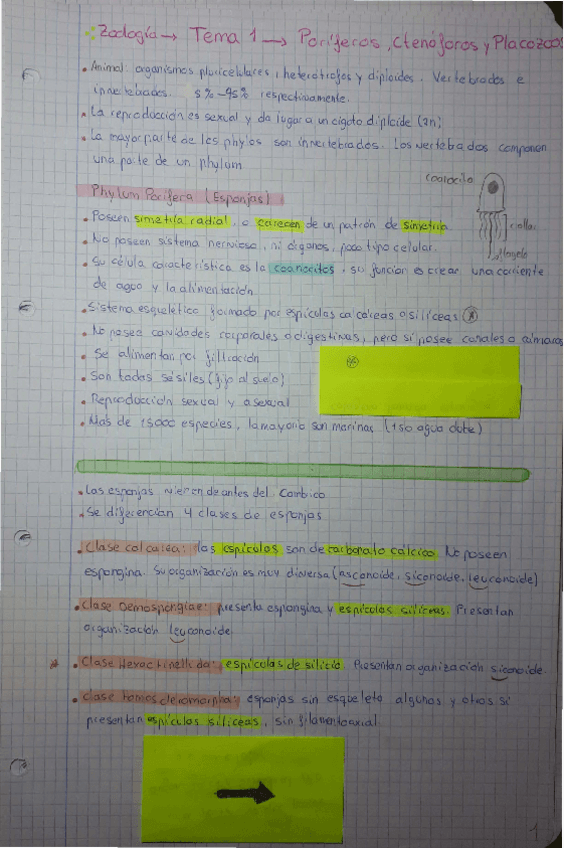 Zoología → Tema 1 → Poríferos, Ctenóforos y Placozoos
• Animal: organismos pluricelulares, heterotrofos y diploides. Vertebrados e
innvertebados. 5% - 95% respectivamente.
• La reproducción es sexual y da lugar a un cigoto diploide (2n)
• La mayor parte de los phylos son innvertebrados. Los vertebrados componen
una parte de un phylum
Phylum Porifera (Esponjas)
Coanocito
collar
flagelo
• Poseen simetría radial, o carecen de un patrón de simetría.
• No poseen sistema nervioso, ni órganos, poco tipo celular.
• Su célula característica es la coanocitos, su función es crear una corriente
de agua y la alimentación
• Sistema esquelético formado por espículas calcáreas o silíceas *
• No posee cavidades corporales o digestivas, pero sí posee canales o cámaras
• Se alimentan por filtración
• Son todas sésiles (fijo al suelo)
• Reproducción sexual y asexual
• Mas de 15000 especies, la mayoría son marinas (150 agua dulce)
*
• Las esponjas vienen de antes del Cambico
• Se diferencian 4 clases de esponjas
• Clase calcarea: las espículas son de carbonato cálcico. No poseen
espongina. Su organización es muy diversa (asconoide, siconoide, leuconoide)
• Clase Demospongiae: presenta espongina y espículas silíceas. Presentan
organización leuconoide.
* • Clase Hexactinellida: espículas de silicio. Presentan organización siconoide.
• Clase homoscleromorpha: esponjas sin esqueleto algunas y otras si
presentan espículas silíceas, sin filamento axial.
1